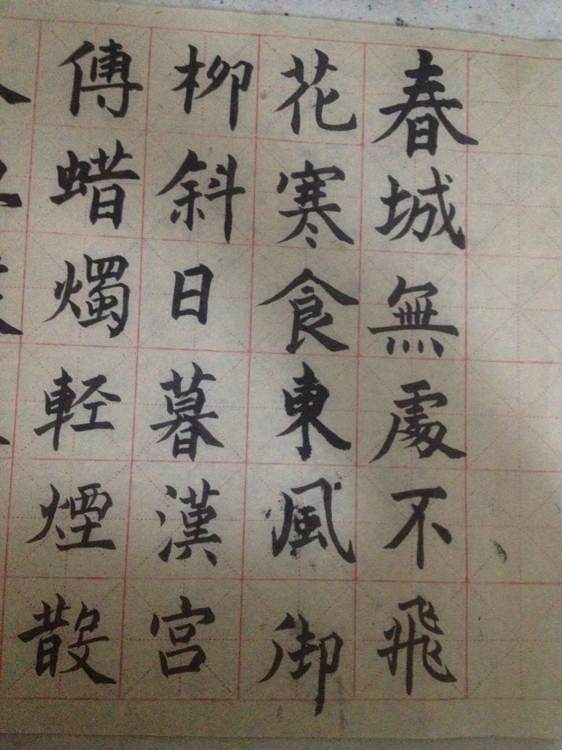 春城無處不飛
花寒食東風御
柳斜日暮漢宮
傳蜡燭輕煙散